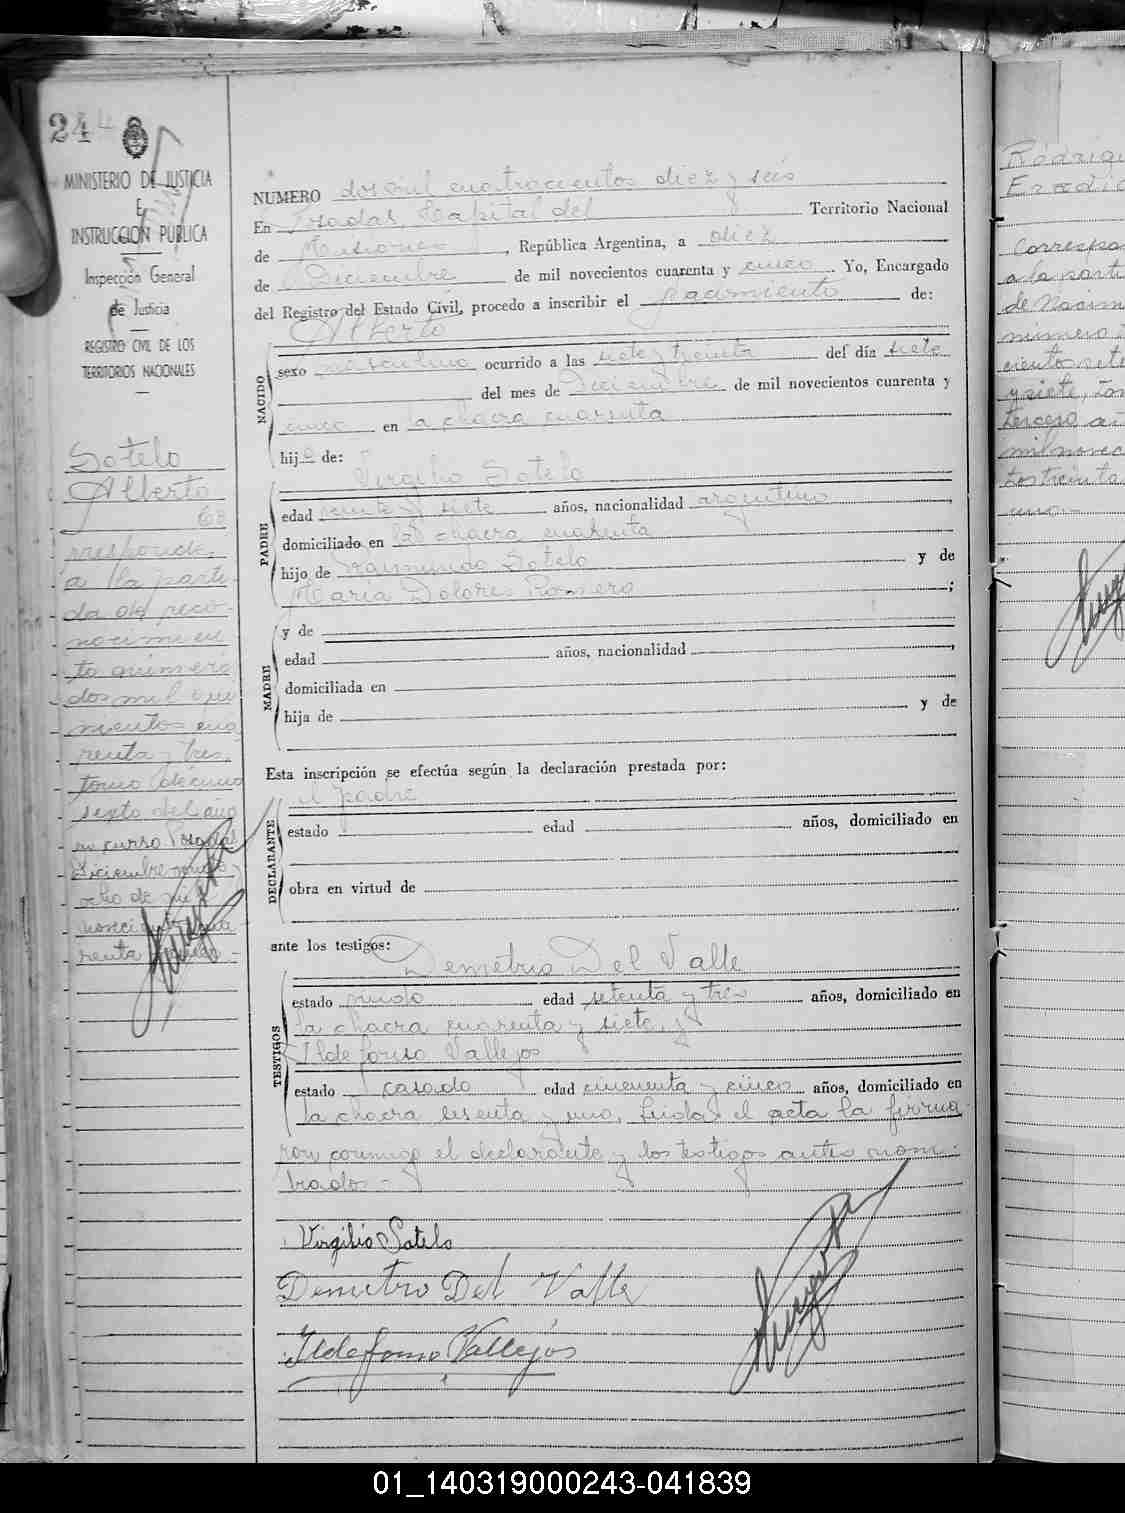 244
MINISTERIO DE JUSTICIA
E
INSTRUCCION PUBLICA
Inspección General
de Justicia
REGISTRO CIVIL DE LOS
TERRITORIOS NACIONALES
Sotelo
Alberto
rresponde
a la parti-
da de reco-
nocimien
to número
dos mil qui
nientos cua
renta y tres,
tomo décimo
sexto del año
en curso Posadas
Diciembre
ocho de mil
noveci
renta
NUMERO dos mil cuatrocientos diez y seis
En Posadas, Capital del Territorio Nacional
de Misiones, República Argentina, a diez
de Diciembre de mil novecientos cuarenta y cinco. Yo, Encargado
del Registro del Estado Civil, procedo a inscribir el nacimiento de:
Alberto
NACIDO
sexo masculino ocurrido a las siete y treinta del día siete
del mes de Diciembre de mil novecientos cuarenta y
cinco en la chacra cuarenta
hijo de:
Virgilio Sotelo
PADRE
edad veinte y siete años, nacionalidad argentino
domiciliado en la chacra cuarenta
hijo de Raimundo Sotelo y de
María Dolores Romero;
MADRE
y de
edad años, nacionalidad ,
domiciliada en
hija de y de
Esta inscripción se efectúa según la declaración prestada por:
el padre
DECLARANTE
estado edad años, domiciliado en
obra en virtud de
ante los testigos:
Demetrio Del Valle
TESTIGOS
estado viudo edad setenta y tres años, domiciliado en
la chacra cuarenta y siete, y
Ildefonso Vallejos
estado casado edad cincuenta y cinco años, domiciliado en
la chacra sesenta y uno, Leida el acta la firma-
ron conmigo el declarante y los testigos antes nom-
brados.-
Virgilio Sotelo
Demetrio Del Valle
Ildefonso Vallejos
Rodrigu
Eradio
Correspo
a la parti
de Nacim
número
ciento sete
y siete, tom
tercero a
mil novec
tos treinta
uno.-
01_140319000243-041839